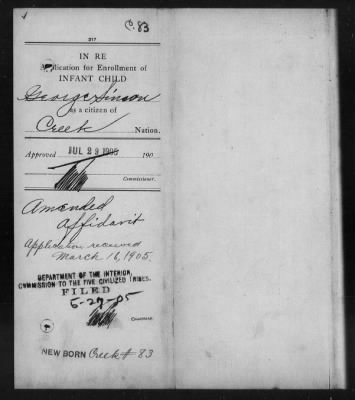 C. 83
217
IN RE
Application for Enrollment of
INFANT CHILD
George Simson
as a citizen of
Creek Nation.
Approved JUL 29 1905 190
Commissioner.
Amended
affidavit
Application received
March 16, 1905.
DEPARTMENT OF THE INTERIOR,
COMMISSION TO THE FIVE CIVILIZED TRIBES.
FILED
5-29-05
CHAIRMAN.
NEW BORN Creek # 83